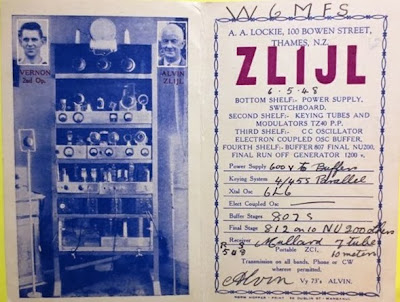 VERNON
2nd Op.
ALVIN
ZL1JL.
W6MFS
A. A. LOCKIE, 100 BOWEN STREET,
THAMES, N.Z.
ZL1JL
6.5.48
BOTTOM SHELF:- POWER SUPPLY,
SWITCHBOARD.
SECOND SHELF:- KEYING TUBES AND
MODULATORS TZ40 P.P.
THIRD SHELF:- C C OSCILLATOR
ELECTRON COUPLED OSC BUFFER.
FOURTH SHELF:- BUFFER 807 FINAL NU200,
FINAL RUN OFF GENERATOR 1200 v.
Power Supply 600 V to Buffers
Keying System 4/45s Parallel
Xtal Osc 6L6
Elect Coupled Osc
Buffer Stages 807s
Final Stage 812 on 10 NU 200 others
Receiver Mullard 7 tube
R S
5 4 9
Portable ZC1, 10 meters
Transmission on all bands, Phone or CW
where permitted.
Alvin Vy 73's ALVIN.